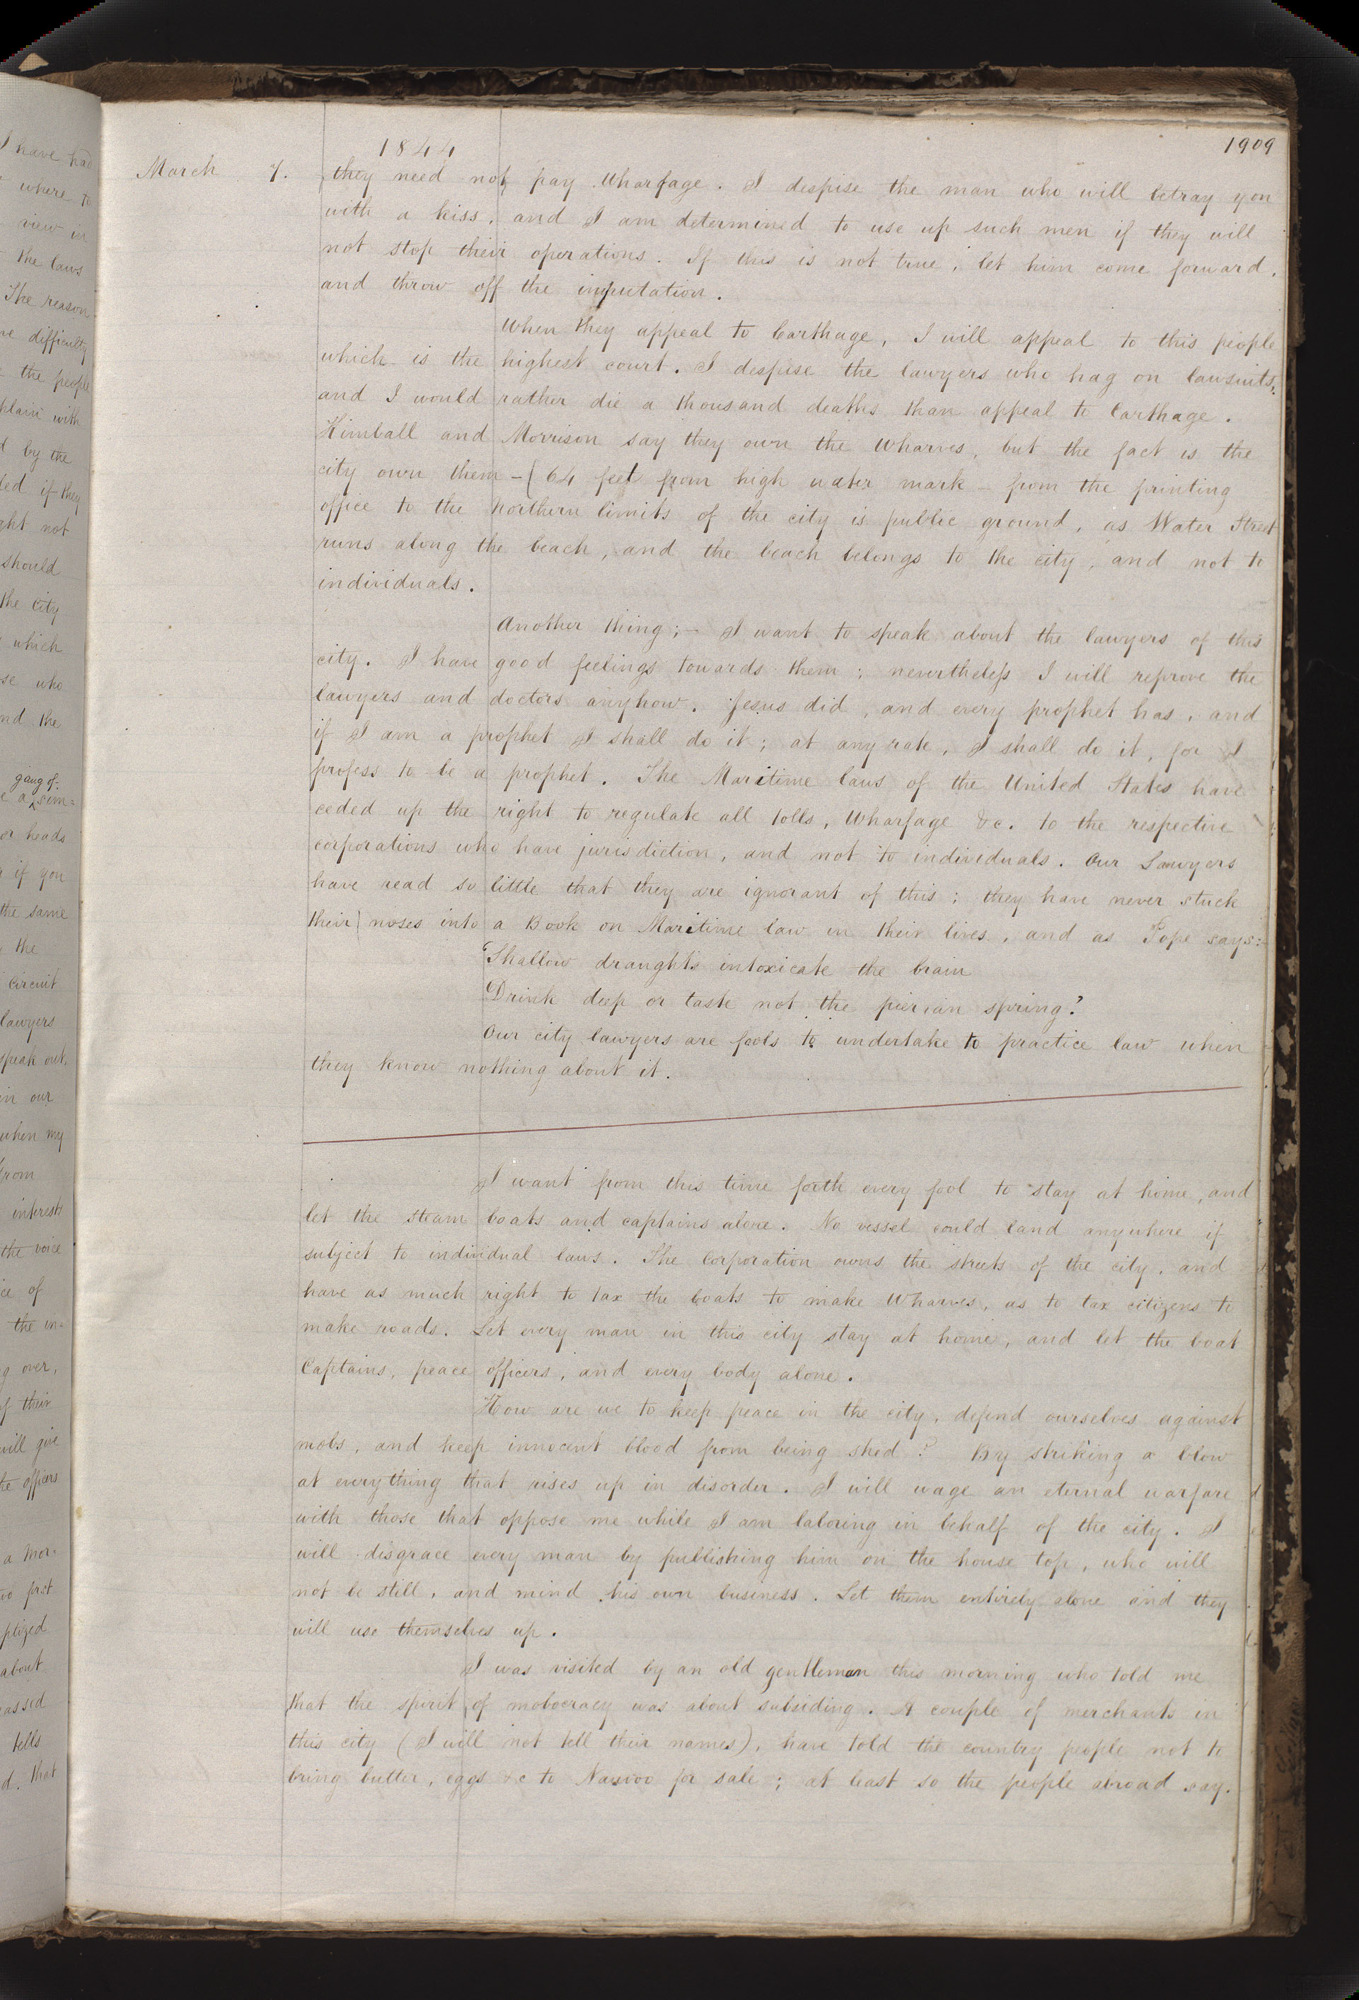 1844
1909
March 7. they need not pay Wharfage. I despise the man who will betray you
with a kiss, and I am determined to use up such men if they will
not stop their operations. If this is not true, let him come forward,
and throw off the imputation.
When they appeal to Carthage, I will appeal to this people
which is the highest court. I despise the lawyers who hag on lawsuits,
and I would rather die a thousand deaths than appeal to Carthage.
Kimball and Morrison say they own the Wharves, but the fact is the
city own them – 64 feet from high water mark – from the printing
office to the Northern limits of the city is public ground, as Water Street
runs along the beach, and the beach belongs to the city, and not to
individuals.
Another thing;– I want to speak about the lawyers of this
city. I have good feelings towards them; nevertheless I will reprove the
lawyers and doctors anyhow. Jesus did, and every prophet has, and
if I am a prophet I shall do it; at any rate, I shall do it, for I
profess to be a prophet. The Maritime laws of the United States have
ceded up the right to regulate all tolls, Wharfage &c. to the respective
corporations who have jurisdiction, and not to individuals. Our Lawyers
have read so little that they are ignorant of this; they have never stuck
their noses into a Book on Maritime law in their lives, and as Pope says:–
"Shallow draughts intoxicate the brain
Drink deep or taste not the pierian spring"
Our city lawyers are fools to undertake to practice law when
they know nothing about it.
I want from this time forth every fool to stay at home, and
let the steam boats and captains alone. No vessel could land anywhere if
subject to individual laws. The corporation owns the streets of the city, and
have as much right to tax the boats to make Wharves, as to tax citizens to
make roads. Let every man in this city stay at home, and let the boat
Captains, peace officers, and every body alone.
How are we to keep peace in the city, defend ourselves against
mobs, and keep innocent blood from being shed? By striking a blow
at everything that rises up in disorder. I will wage an eternal warfare
with those that oppose me while I am laboring in behalf of the city. I
will disgrace every man by publishing him on the house top, who will
not be still, and mind his own business. Let them entirely alone and they
will use themselves up.
I was visited by an old gentleman this morning who told me
that the spirit of mobocracy was about subsiding. A couple of merchants in
this city (I will not tell their names), have told the country people not to
bring butter, eggs &c to Nauvoo for sale; at least so the people abroad say.